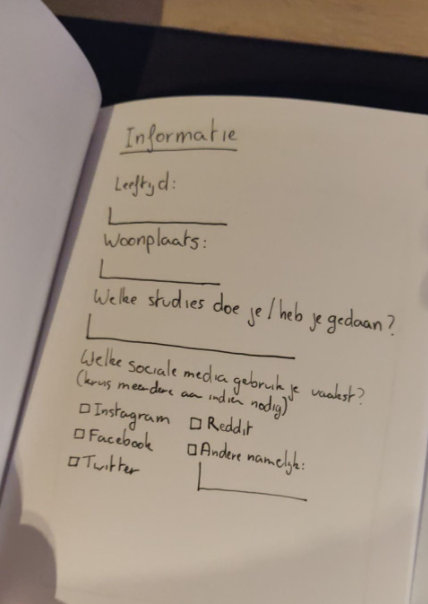 Informatie
Leeftijd:
Woonplaats:
Welke studies doe je / heb je gedaan?
Welke sociale media gebruik je vaakst?
(kruis meerdere aan indien nodig)
Instagram
Facebook
Twitter
Reddit
Andere namelijk: